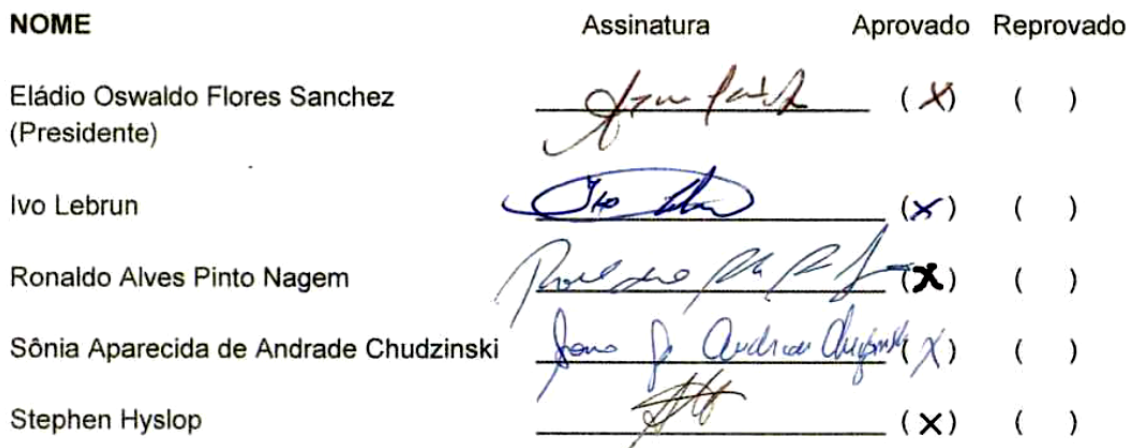 NOME Assinatura Aprovado Reprovado
Eládio Oswaldo Flores Sanchez ( X ) ( )
(Presidente)
Ivo Lebrun Ivo ( X ) ( )
Ronaldo Alves Pinto Nagem ( X ) ( )
Sônia Aparecida de Andrade Chudzinski Andrade Chudzinski ( X ) ( )
Stephen Hyslop ( X ) ( )